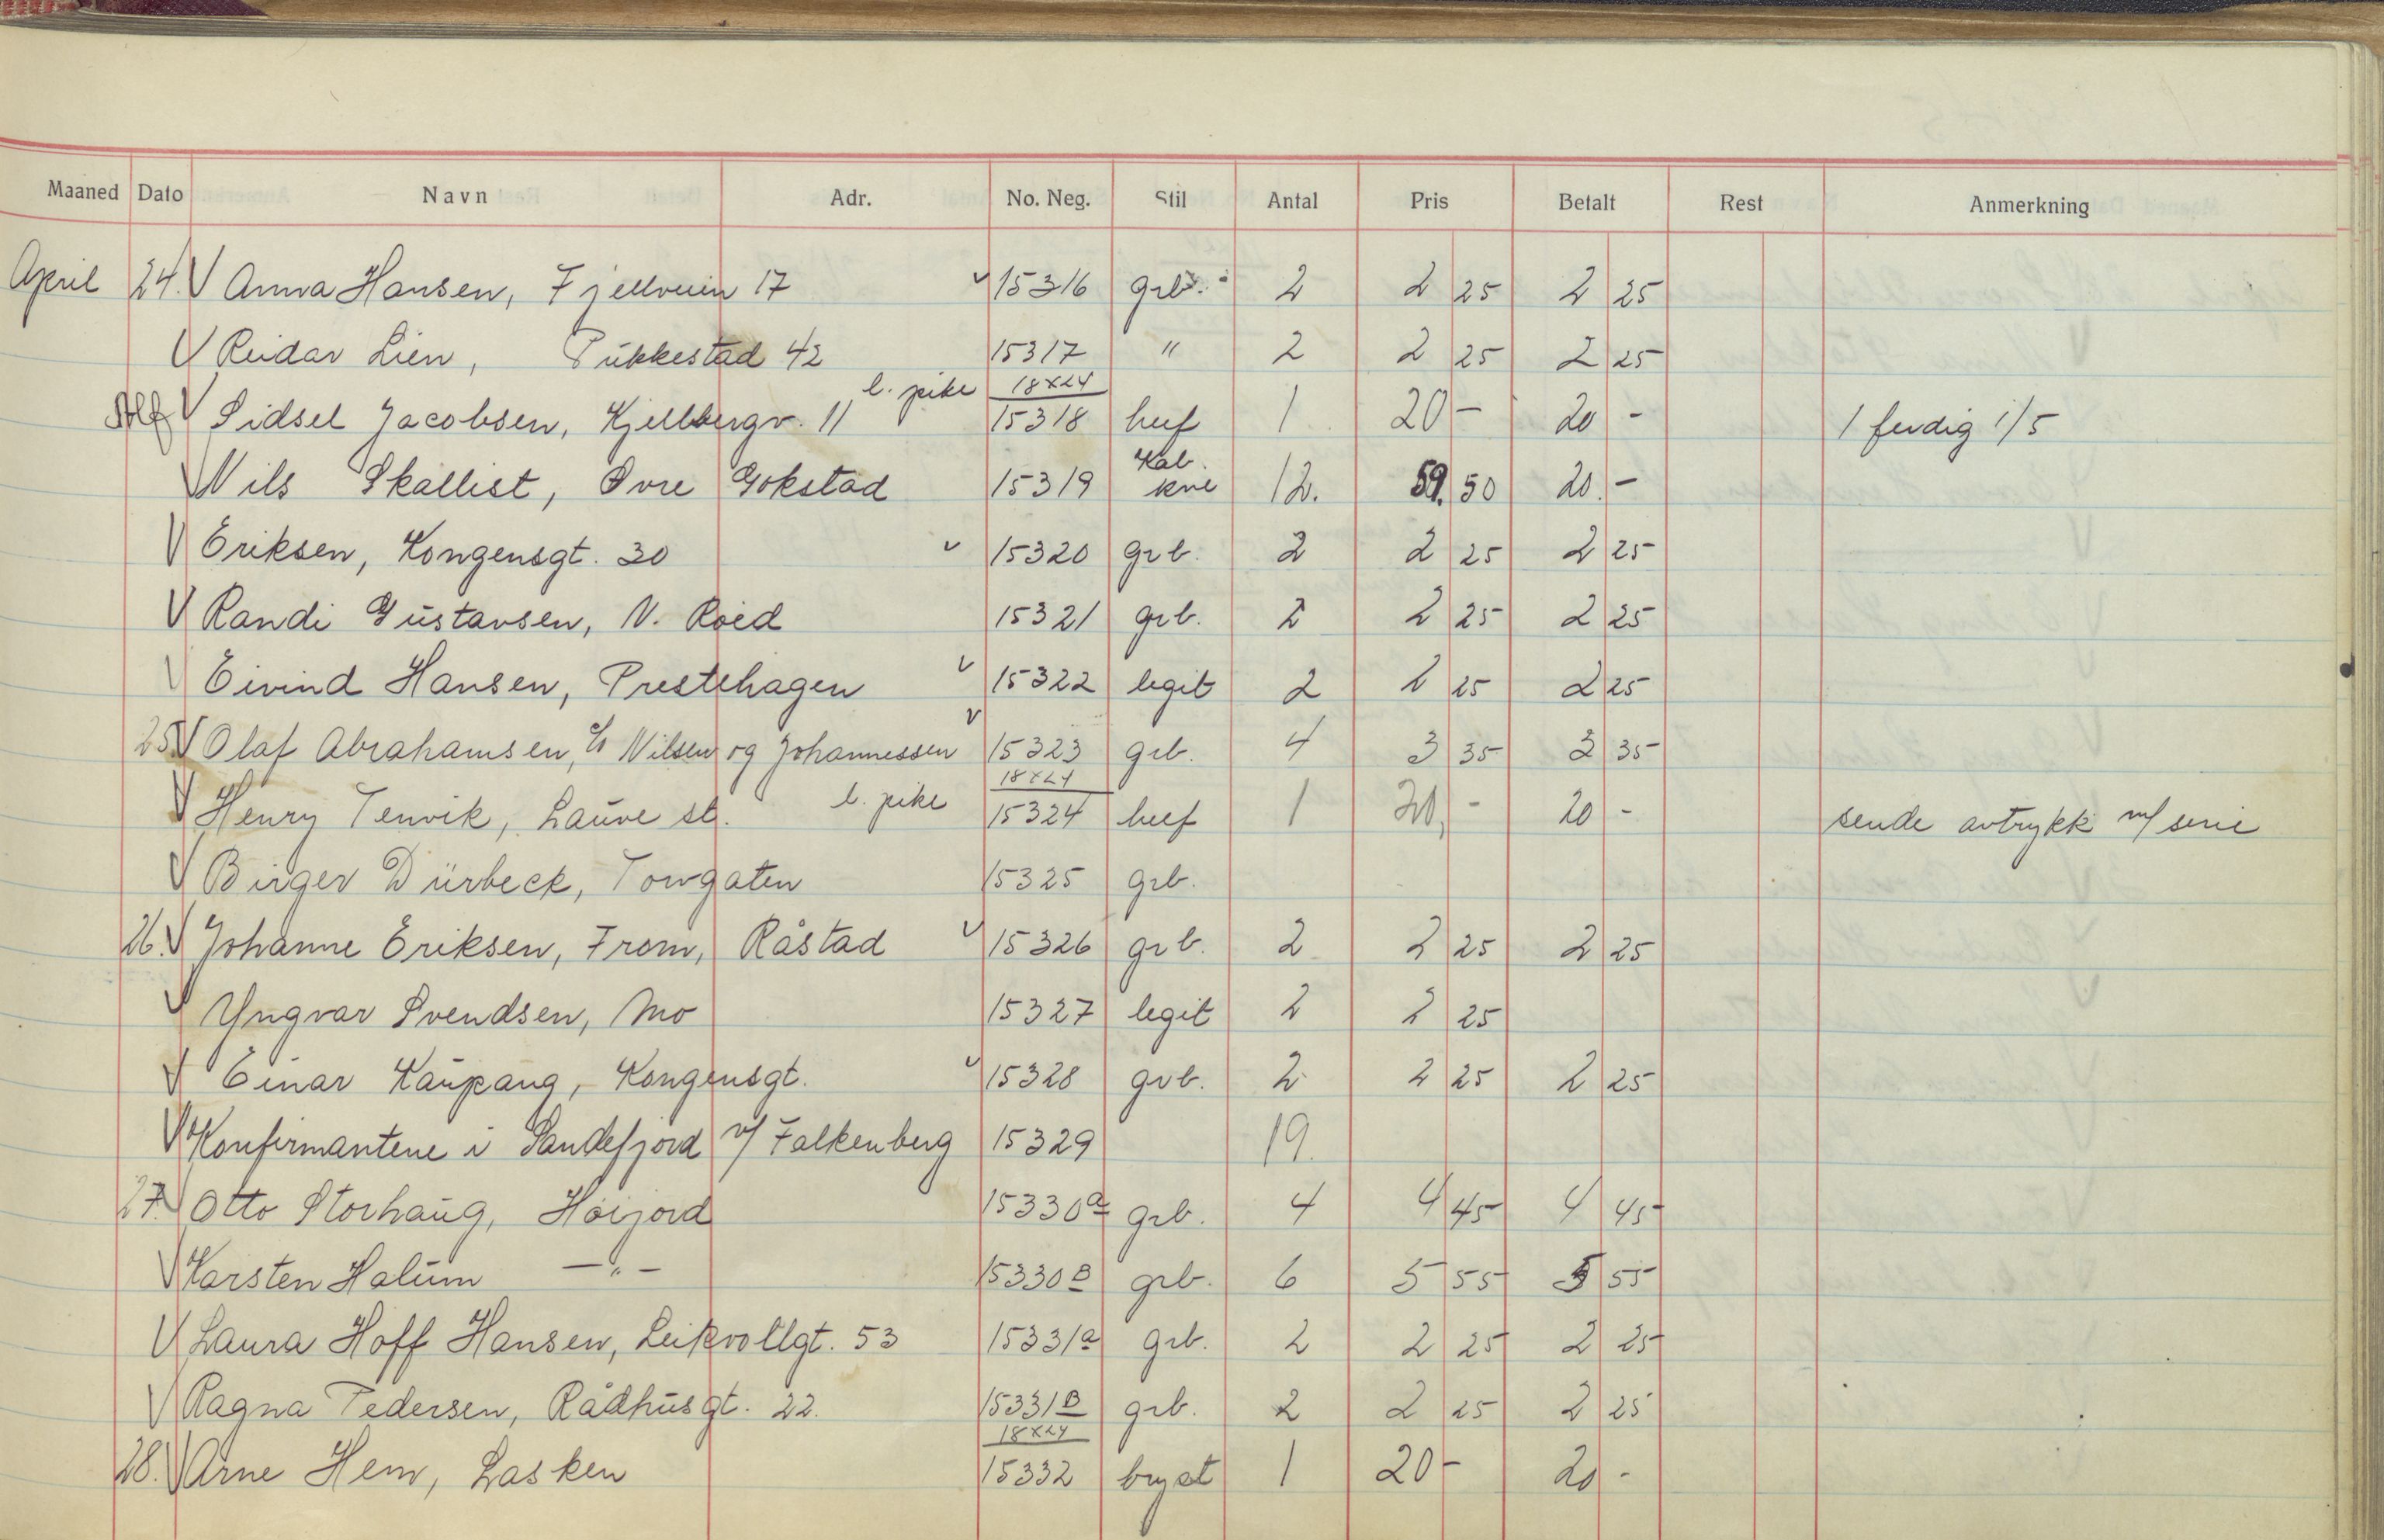 Maaned Dato Navn Adr. No. Neg. Stil Antal Pris Betalt Rest Anmerkning
April 24. V Anna Hansen, Fjellveien 17 v 15316 grb. 2 2 25 2 25
V Reidar Lien, Pukkestad 42 15317 " 2 2 25 2 25
V Sidsel Jacobsen, Kjellbergv. 11 l. pike 18x24 15318 heef 1 20 - 20 - 1 ferdig 1/5
V Nils Skallist, Øvre Gokstad 15319 Kab. kne 12. 59. 50 20. -
V Eriksen, Kongensgt. 30 v 15320 grb. 2 2 25 2 25
V Randi Gustavsen, N. Röed 15321 grb. 2 2 25 2 25
V Eivind Hansen, Prestehagen v 15322 legit 2 2 25 2 25
25 V Olaf Abrahamsen, c/o Nilsen og Johannessen v 15323 grb. 4 3 35 3 35
V Henry Tenvik, Lauve st. l. pike 18x24 15324 heef 1 20, - 20 - sende avtrykk m/ serie
V Birger Dürbeck, Torvgaten 15325 grb.
26. V Johanne Eriksen, From, Råstad v 15326 grb. 2 2 25 2 25
V Yngvar Svendsen, Mo 15327 legit 2 2 25
V Einar Kaupang, Kongensgt. v 15328 grb. 2 2 25 2 25
V Konfirmantene i Sandefjord v/ Falkenberg 15329 19.
27. V Otto Storhaug, Höijord 15330a grb. 4 4 45 4 45
V Karsten Halum —"— 15330B grb. 6 5 55 5 55
V Laura Hoff Hansen, Leikvollgt. 53 15331a grb. 2 2 25 2 25
V Ragna Pedersen, Rådhusgt. 22. 15331B grb. 2 2 25 2 25
28. V Arne Hem, Lasken 18x24 15332 bryst 1 20 - 20 -